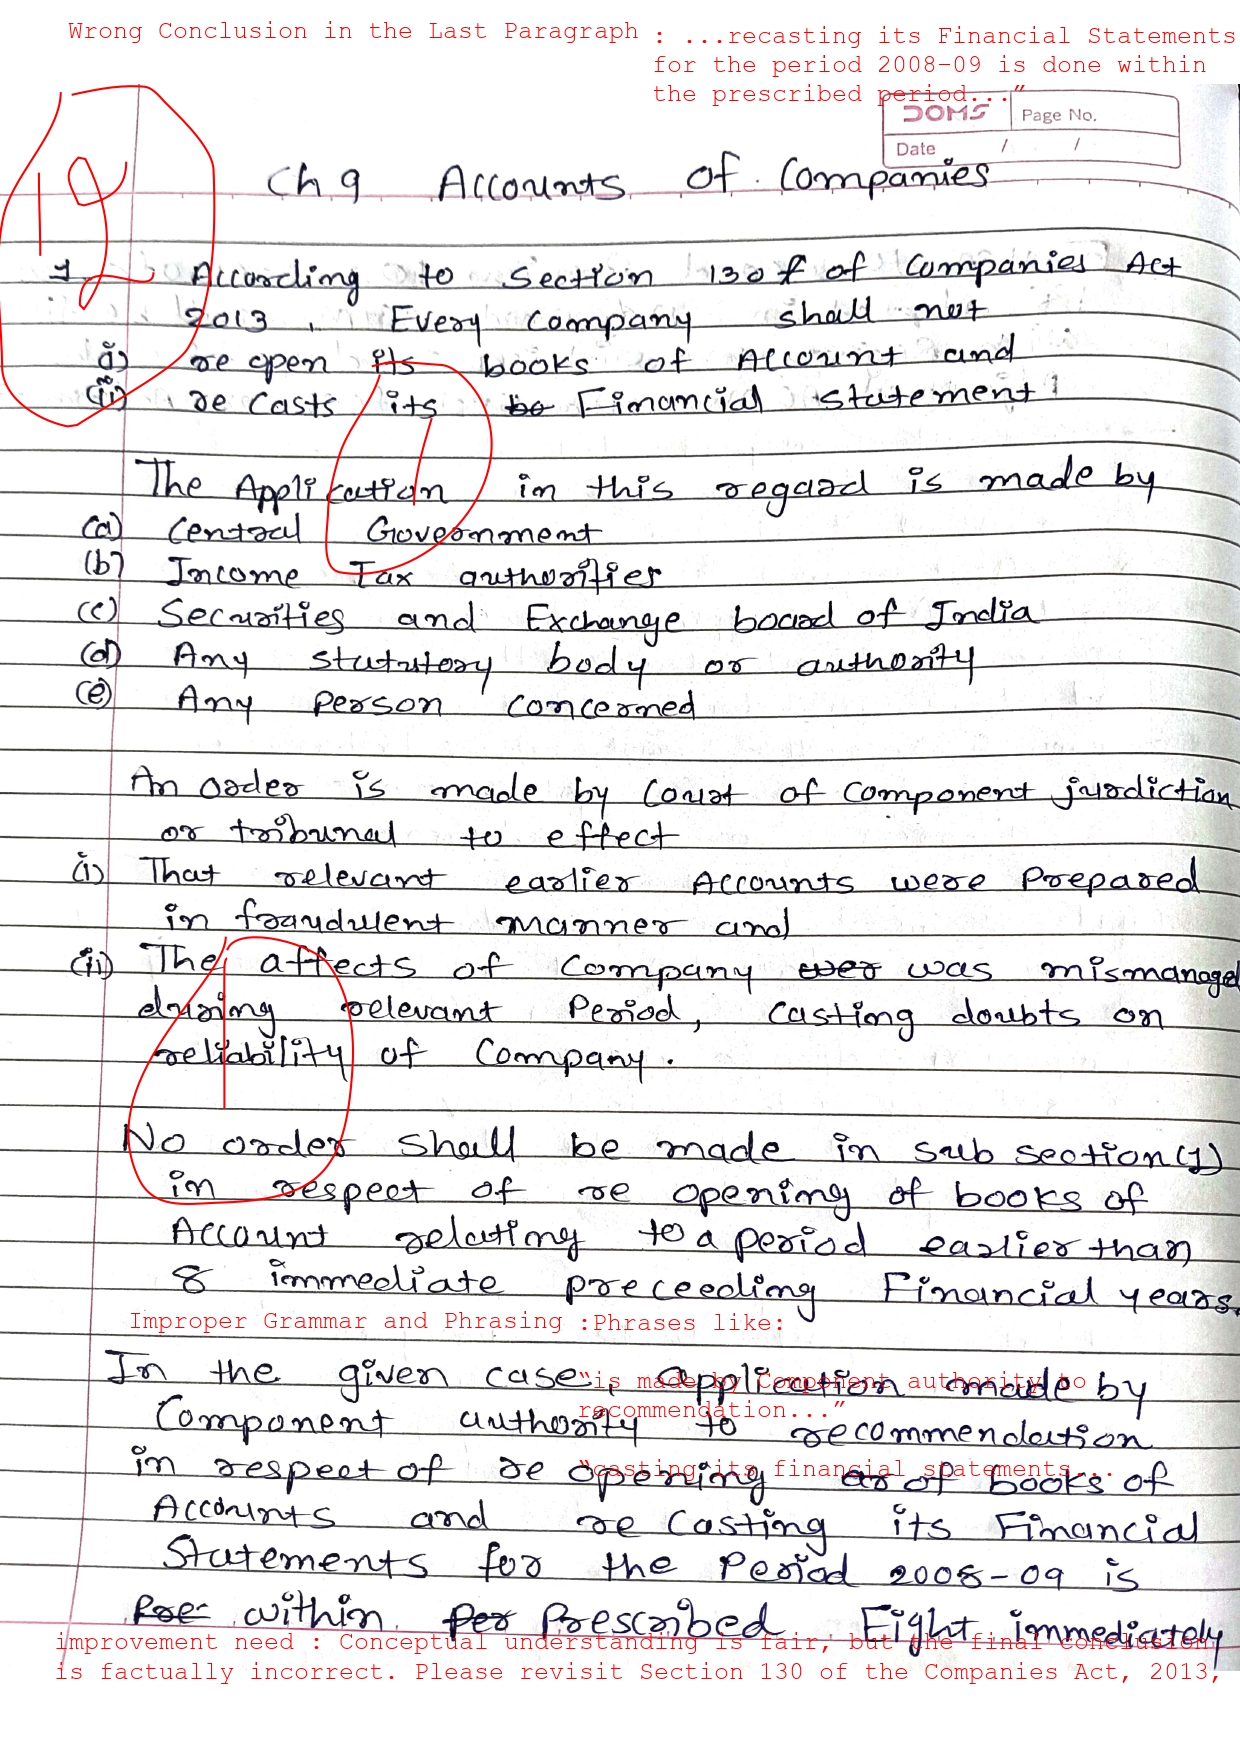 Wrong Conclusion in the Last Paragraph : ...recasting its Financial Statements
for the period 2008-09 is done within
the prescribed period..."
DOMS Page No.
Date / /
19
Ch 9 Accounts of Companies
1 According to Section 130 of Companies Act
2013, Every company shall not
(i) re open its books of Account and
(ii) re casts its Financial statement
The Application in this regard is made by
(a) Central Government
(b) Income Tax authorities
(c) Securities and Exchange board of India
(d) Any statutory body or authority
(e) Any person concerned
An order is made by Court of Component jurdiction
or tribunal to effect
(i) That relevant earlier Accounts were Prepared
in fraudulent manner and
(ii) The affects of Company wer was mismanaged
during relevant Period, casting doubts on
reliability of Company.
1
1
No order shall be made in sub section (1)
in respect of re opening of books of
Account relating to a period earlier than
8 immediate preceeding Financial years.
Improper Grammar and Phrasing :Phrases like:
In the given case, Application made by
"is made by Component authority to
recommendation..."
Component authority to recommendation
in respect of re opening as of books of
"casting its financial statements...
Accounts and re Casting its Financial
Statements for the Period 2008-09 is
Pre within per Prescribed Eight immediately
improvement need : Conceptual understanding is fair, but the final conclusion
is factually incorrect. Please revisit Section 130 of the Companies Act, 2013,